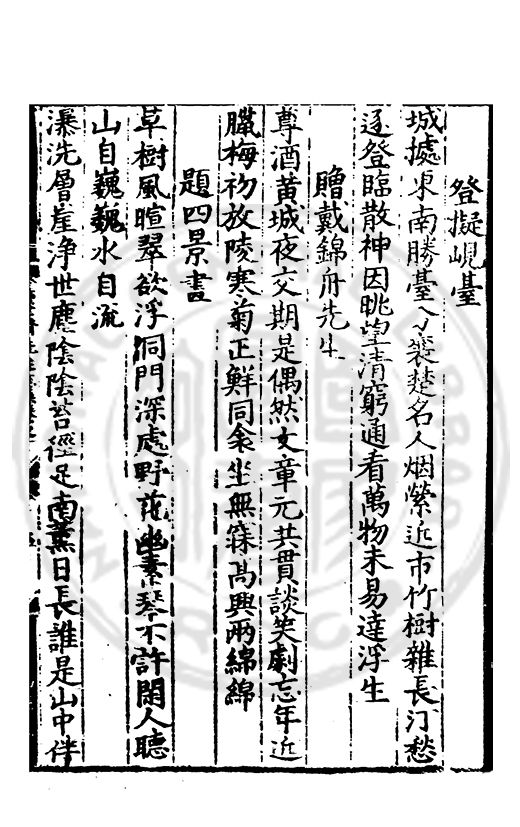 登擬峴臺
城據東南勝臺分襄楚名人烟縈近市竹樹雜長汀愁
逐登臨散神因眺望清窮通看萬物未易達浮生
贈戴錦舟先生
尊酒黃城夜交期是偶然文章元共貫談笑劇忘年近
臘梅初放陵寒菊正鮮同衾坐無寐高興兩綿綿
題四景畫
草樹風暄翠欲浮洞門深處野花幽素琴不許閑人聽
山自巍巍水自流
瀑洗層崖淨世塵陰陰苔徑足南薰日長誰是山中伴